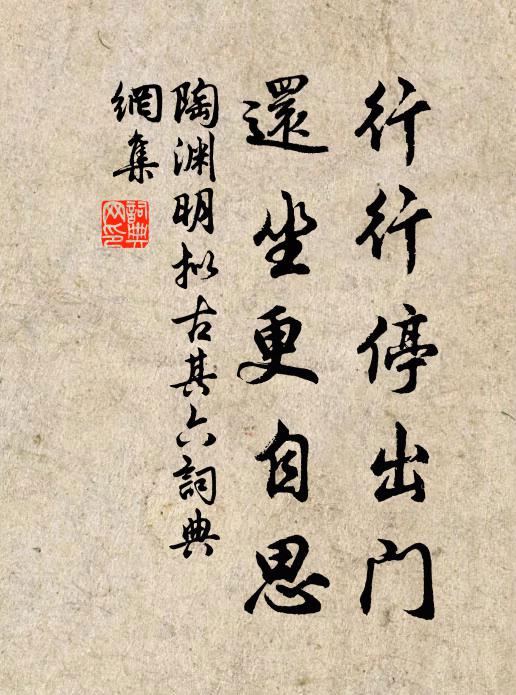 行行停出門
還坐更自思
陶渊明拟古其六詞典
網集
詞典
网印